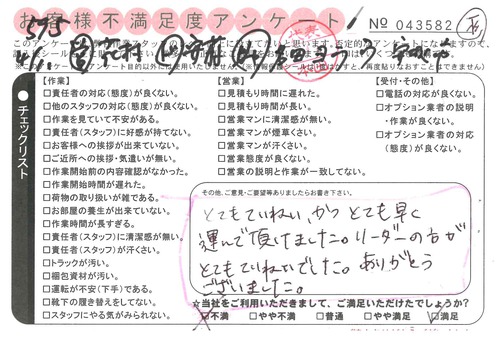 お客様不満足度アンケート
No 043582
チェックリスト
【作業】
□責任者の対応(態度)が良くない。
□他のスタッフの対応(態度)が良くない。
□作業を見ていて不安がある。
□責任者(スタッフ)に好感が持てない。
□お客様への挨拶が出来ていない。
□ご近所への挨拶・気遣いが無い。
□作業開始前の内容確認がなかった。
□作業開始時間が遅れた。
□荷物の取り扱いが雑である。
□お部屋の養生が出来ていない。
□作業時間が長すぎる。
□責任者(スタッフ)に清潔感が無い。
□責任者(スタッフ)が汗くさい。
□トラックが汚い。
□梱包資材が汚い。
□運転が不安(下手)である。
□靴下の履き替えをしてない。
□スタッフにやる気がみられない。
【営業】
□見積もり時間に遅れた。
□見積もり時間が長い。
□営業マンに清潔感が無い。
□営業マンが煙草くさい。
□営業マンが汗くさい。
□営業態度が良くない。
□営業の説明と作業が一致してない。
【受付・その他】
□電話の対応が良くない。
□オプション業者の説明
・作業が良くない。
□オプション業者の対応
(態度)が良くない。
その他、ご意見・ご要望等ありましたらお書き下さい。
とてもていねい、かつとても早く
運んで頂けました。リーダーの方が
とてもていねいでした。ありがとう
ございました。
☆当社をご利用いただきまして、ご満足いただけたでしょうか?
□不満 □やや不満 □普通 □やや満足 □満足